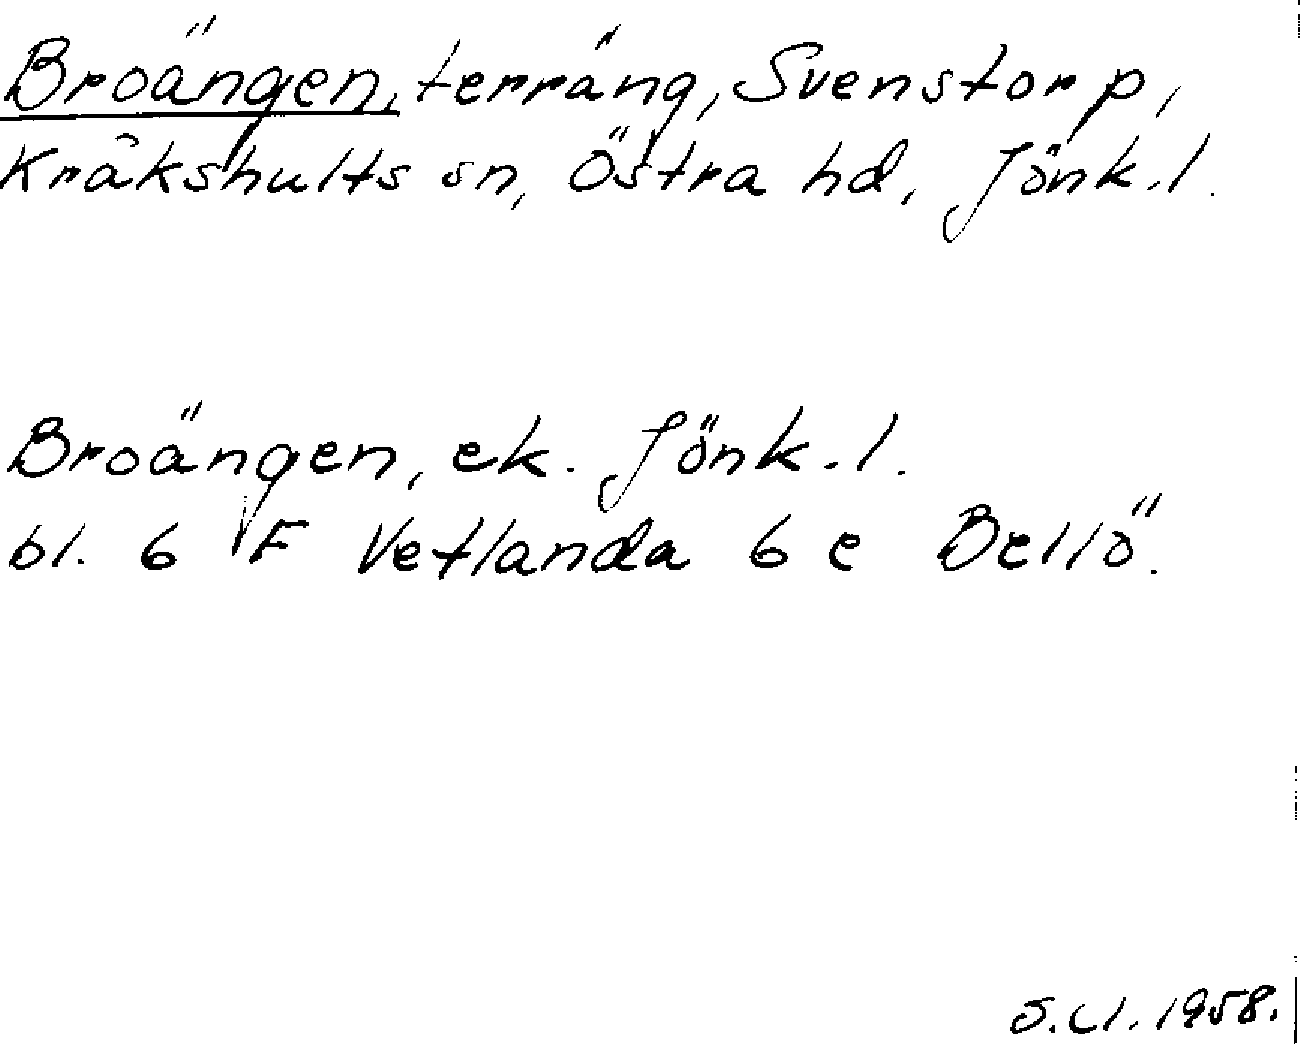 Broängen, terräng, Svenstorp,
Kråkshults sn, Östra hd, Jönk.l.
Broängen, ek. Jönk.l.
bl. 6 F Vetlanda 6 e Bellö.
1958.